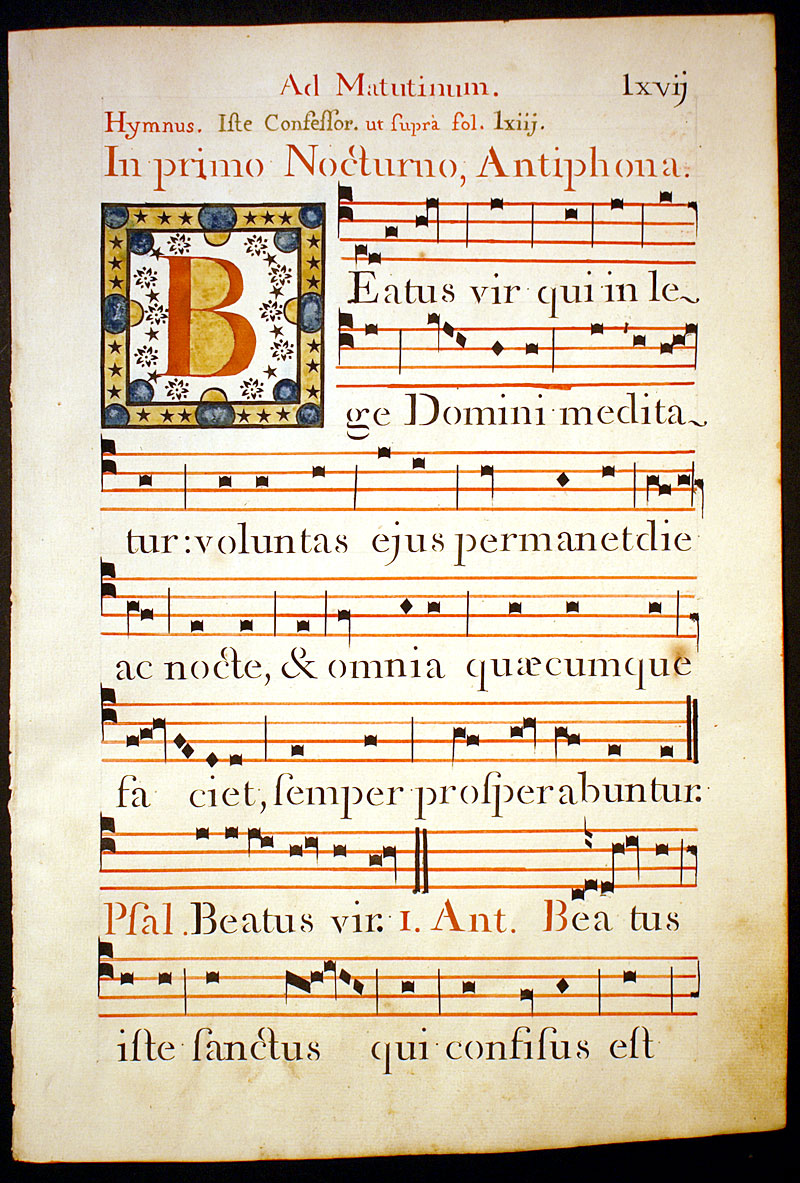 Ad Matutinum. lxvij
Hymnus. Iſte Confeſſor. ut ſuprà fol. lxiij.
In primo Nocturno, Antiphona.
BEatus vir qui in le~
ge Domini medita~
tur: voluntas ejus permanet die
ac nocte, & omnia quæcumque
fa ciet, ſemper proſperabuntur.
Pſal. Beatus vir. 1. Ant. Bea tus
iſte ſanctus qui confiſus eſt